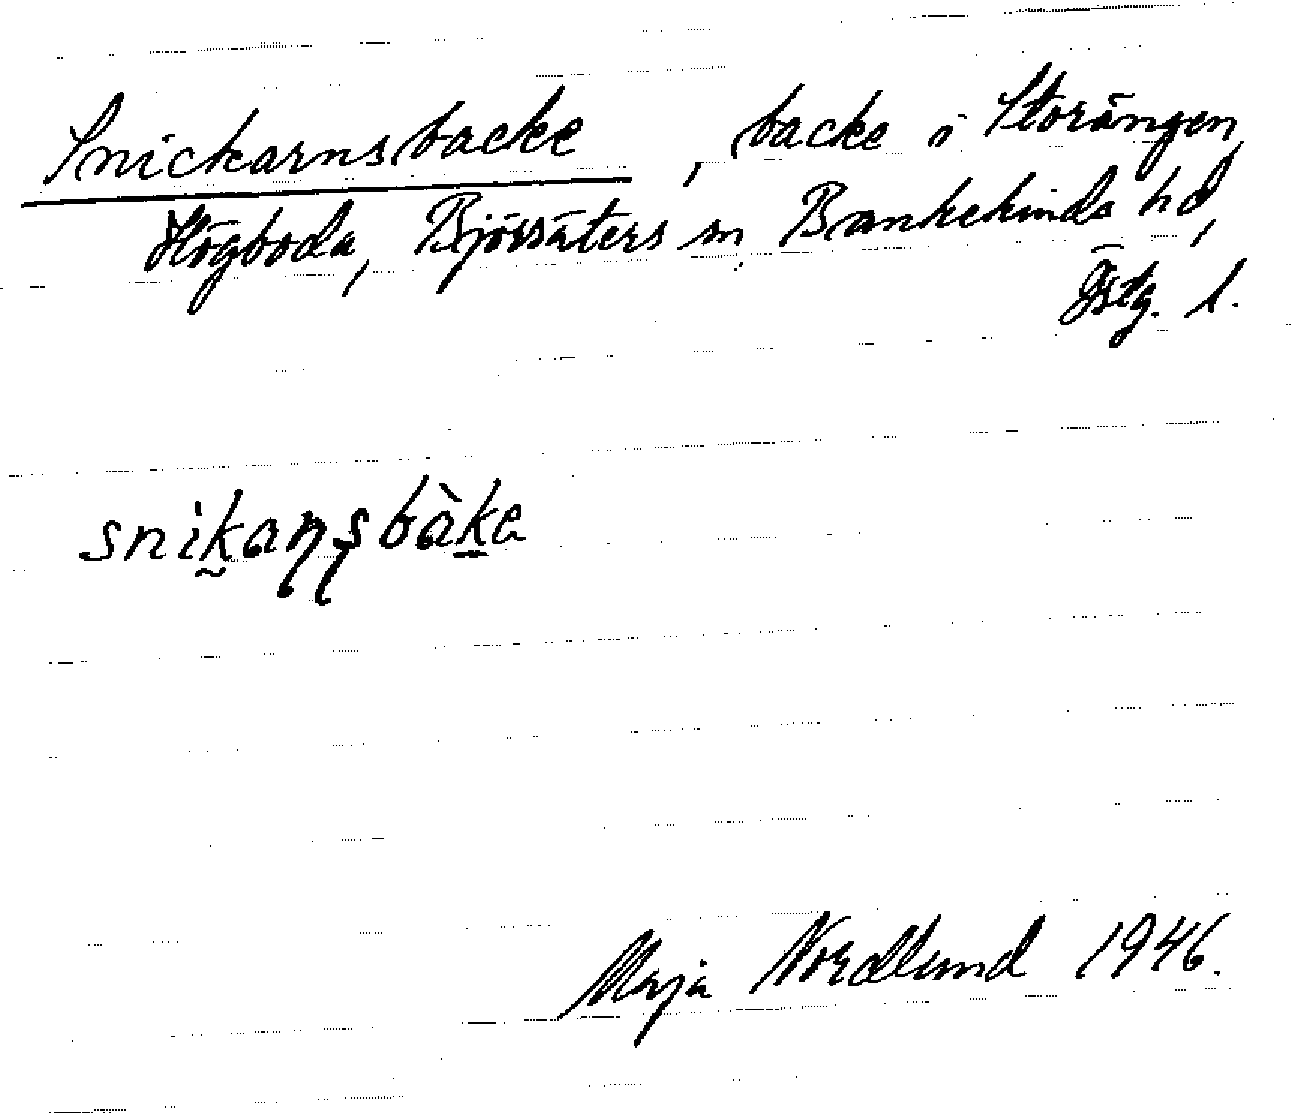 Snickarnsbacke, backe i Storängen,
Högboda, Björsäters sn, Bankekinds hd,
Östg. l.
snik̰aꞑʂbàk̠e
Maja Nordlund 1946.